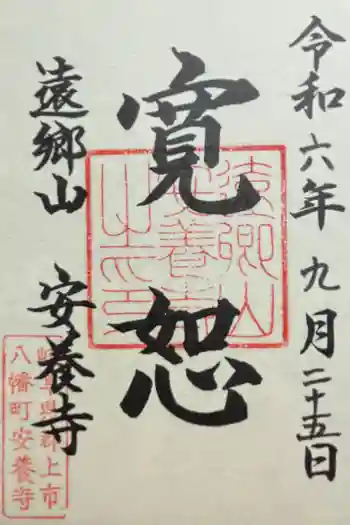 令和六年九月二十五日
寛恕
遠郷山 安養寺
遠郷山
安養寺
山之印
岐阜県郡上市
八幡町安養寺